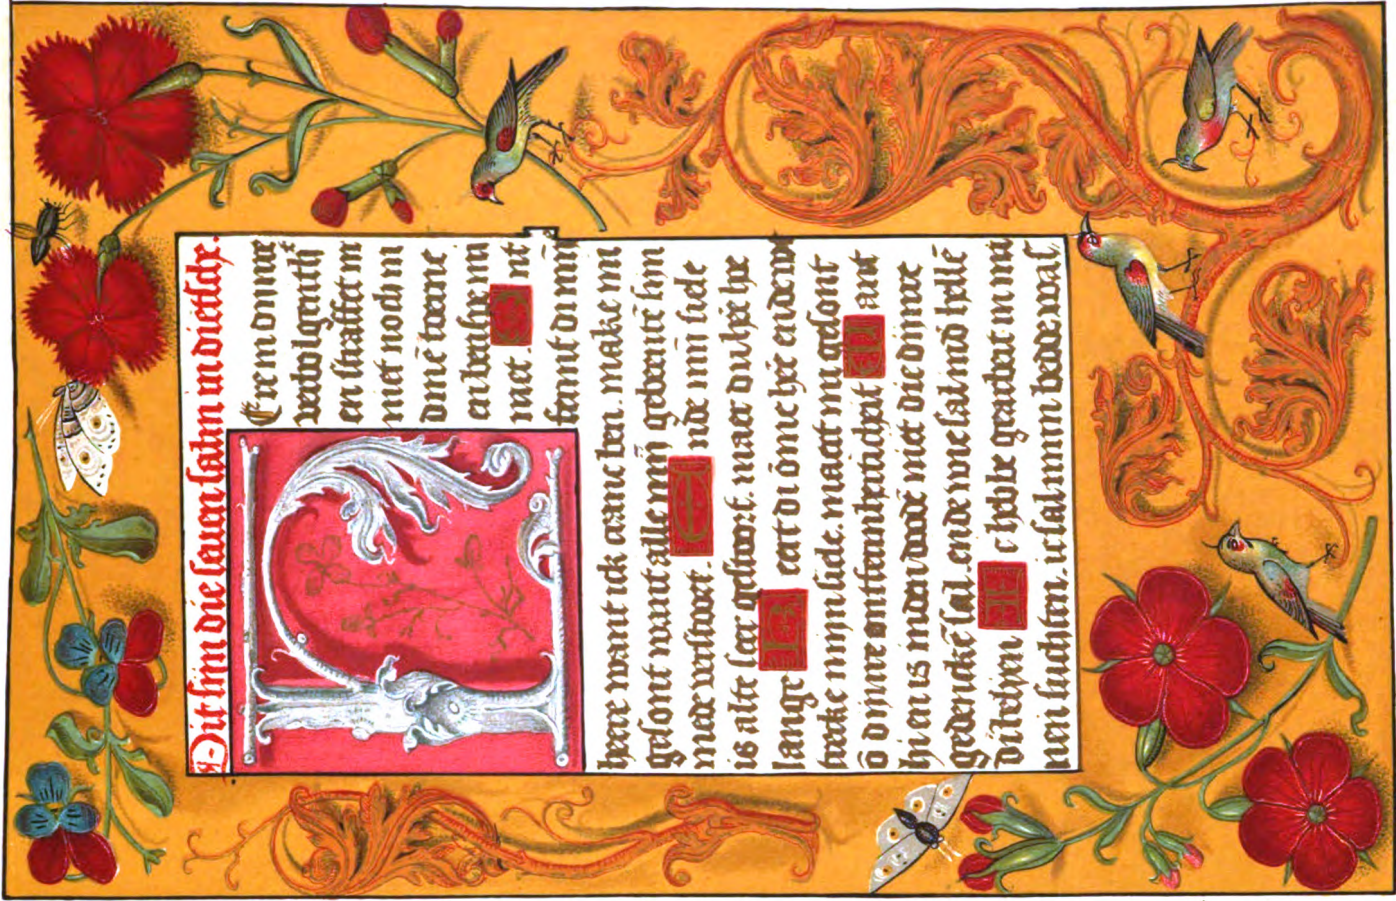 Dit sijn die seuen salm in dietsche.
Ere in dinre
en straffet m
niet noch in
dinē toorne
en berispe mi
niet. O nt
fermt di min
here want ick cranc ben. make mi
gesont want alle min gebente sin
mede verstoort. E nde min siele
is alte seer gestoort. maer du here hoe
lange K eert di om here ende
trecke mijn siele. maect mi gesont
ō dijnre ontfermherticheit W ant
hi en is inden doot niet die dijnre
gedenckē sal ende wie sal ind hellē
di I c hebbe gearbeit in mi
nen suchten. ic sal minen bedde was